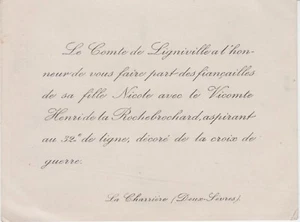 Le Comte de Ligniville a l'hon-
neur de vous faire part des fiançailles
de sa fille Nicole avec le Vicomte
Henri de la Rochebrochard, aspirant
au 32e de ligne, décoré de la croix de
guerre.
La Charrière (Deux-Sèvres).